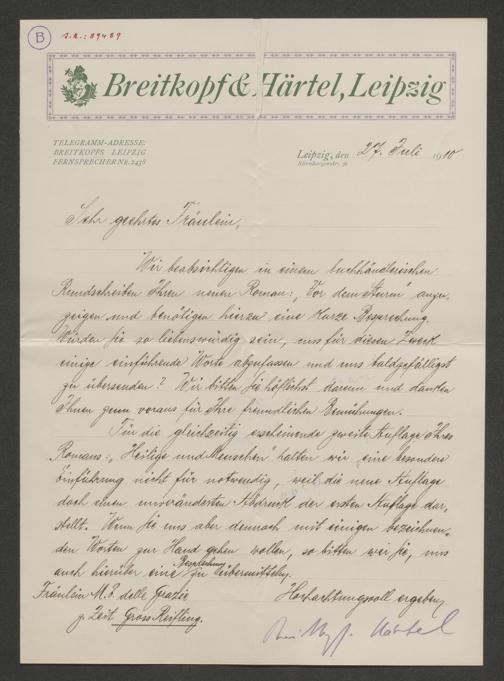 B
I.N.: 89489
Breitkopf & Härtel, Leipzig
TELEGRAMM-ADRESSE:
BREITKOPFS LEIPZIG
FERNSPRECHER Nr. 2438
Leipzig, den 27. Juli 1910
Nürnbergerstr. 36
Sehr geehrtes Fräulein,
Wir beabsichtigen in einem buchhändlerischen
Rundschreiben Ihren neuen Roman: „Vor dem Sturm" anzu-
zeigen und benötigen hierzu eine kurze Besprechung.
Würden Sie so liebenswürdig sein, uns für diesen Zweck
einige einführende Worte abzufassen und uns baldgefälligst
zu übersenden? Wir bitten Sie höflichst darum und danken
Ihnen gern voraus für Ihre freundlichen Bemühungen.
Für die gleichzeitig erscheinende zweite Auflage Ihres
Romans: „Heilige und Menschen" halten wir eine besondere
Einführung nicht für notwendig, weil die neue Auflage
doch einen unveränderten Abdruck der ersten Auflage dar-
stellt. Wenn Sie uns aber dennoch mit einigen bezeichnen-
den Worten zur Hand gehen wollen, so bitten wir Sie, uns
auch hierüber eine Besprechung zu übermitteln.
Fräulein M. E. delle Grazie
Hochachtungsvoll ergeben
z. Zeit. Gross Reifling.
Breitkopf Härtel